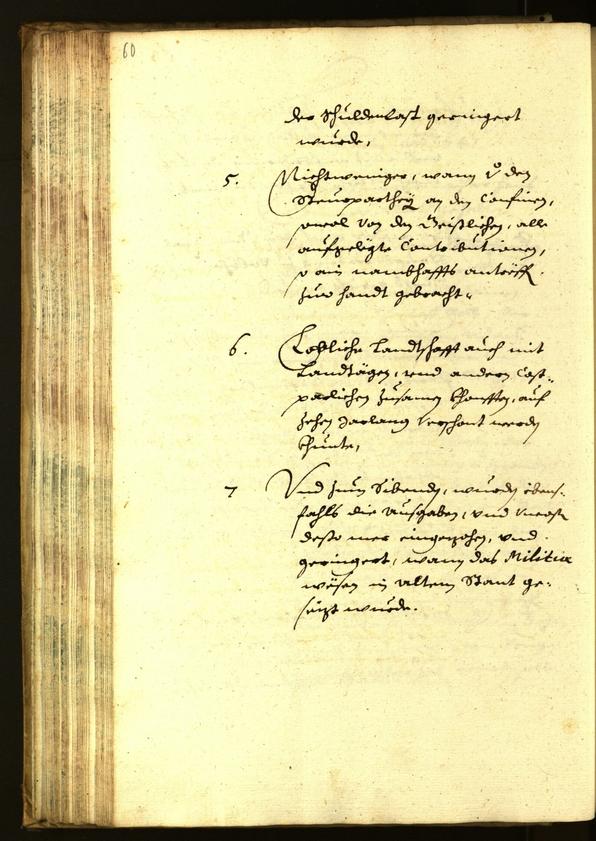 60
der Schuldenlast geringert
wurde,
5. Nichtweniger, wann v̊ den
Steurparthey an den Confinen,
sowol von den Geistlichen, alle
aufgelegte Contributionen,
ain nambhaffts antrifft
zur handt gebracht.
6. Lobliche Landtschafft auch mit
Landtägen, und andern Cost-
parlichen Zusamen khonfften, auf
zehen Jar lang verschont werden
khunte,
7 Und zum Sibenden, wurden eben-
fahls die Ausgaben, und
desto mer eingezohen, und
geringert, wann das Militia
wesen in altem Stant ge-
sezt wurde.